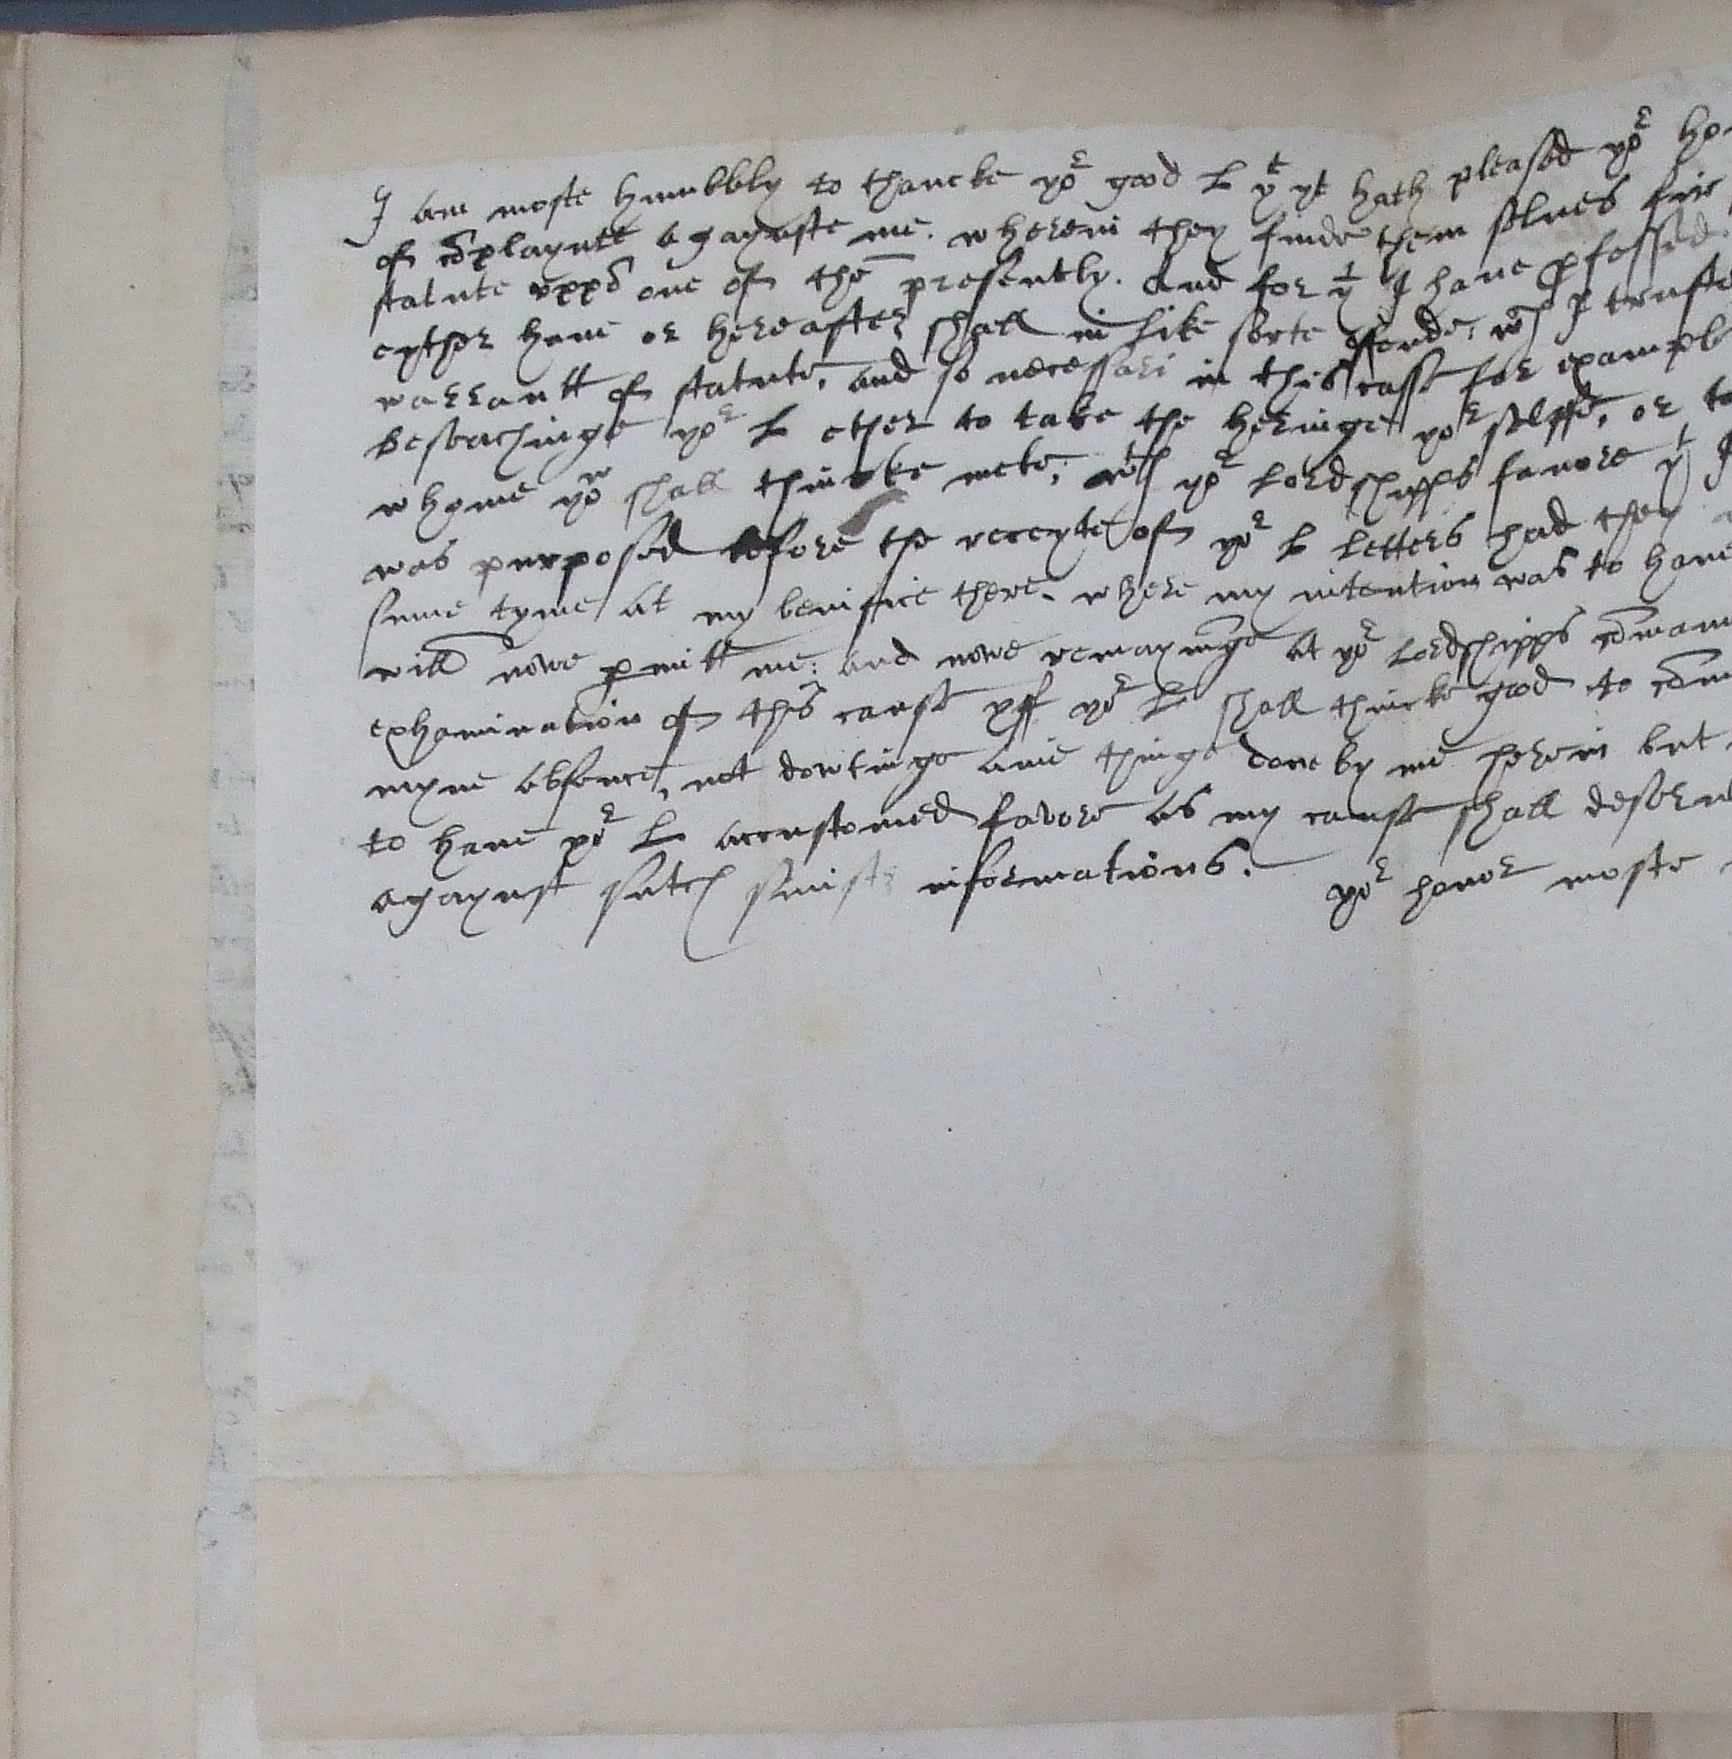 I am moste humbbly to thancke yor good L yt yt hath pleased yor ho
of cōplayntt agaynste me. wherein they finde them selues
statute uppō one of thē presently. And for yt I have pfessed
eyther have or hereafter shall in like sorte offende, wch I truste
warrantt of statute, and so necessari in this casse for exampl
beseachinge yor L ether to take the heringe yor selffe, or to
whome yow shall thincke mete, wth yor Lordshipps favore yt I
was purposed before the receyte of yor L letters had they
sume tyme at my benifice there. where my intention was to have
will nowe pmitt me: and nowe remayninge at yor Lordshipps cōmaun
exhamination of this cause yff yor L shall thincke good to cōm
myne absence, not dowtinge anie thinge done by me herein but
to have yor L accustomed favore as my cause shall deserv
agaynst sutch sinistr informations. yor honor moste